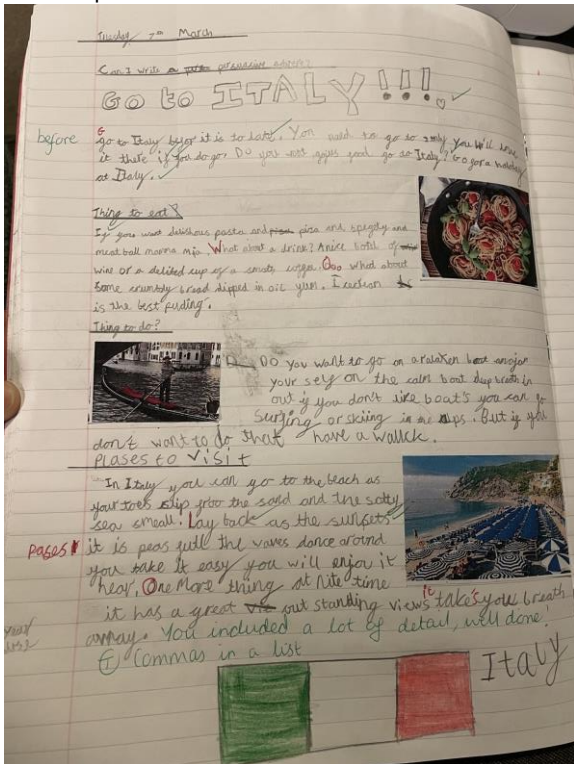 Tuesday 7th March
Can I write a persuasive advert?
GO to ITALY!!!
before
go to Italy befor it is to late. You need to go to Italy you will love
it there if you do go. Do you want good go to Italy? Go for a holiday
at Italy.
Thing to eat?
If you want delishous pasta and pica and spegety and
meat ball mamma mia. What about a drink? A nice botel of
wine or a cup of a smoty coffe. Ooo what about
Some crumbly bread dipped in oil yum.
is the best puding.
Thing to do?
Do you want to go on a boat
your self on the calm boat deep breath in
out if you don't like boat's you can go
Surfing or skiing in the alps. But if you
don't want to do that have a wallck.
Plases to visit
In Italy you can go to the beach as
your toes slip into the sand and the salty
sea smeall. Lay back as the sunsets
pages it is peas full the waves dance around
you take it easy you will enjoy it
hear. One More thing at Nite time
it has a great out standing views it take's you breath
away. You included a lot of detail, well done!
T Commas in a list
Italy